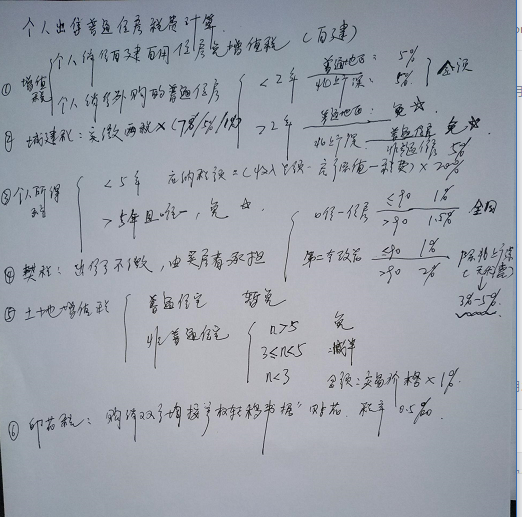 个人出售普通住房税费计算
个人销售自建自用住房免增值税（自建）
① 增值税 个人销售外购的普通住房 <2年 普通地区：5% 北上广深：5% 全额
>2年 普通地区：免☆ 北上广深 普通住房 免☆ 非普通住房 5%
② 城建税：实缴两税×（7%/5%/1%）
③ 个人所得税 <5年 应纳税额=（收入总额-房产原值-税费）×20%
>5年且唯一，免☆
④ 契税：出售方不缴，由买房者承担
唯一住房 ≤90 1% >90 1.5% 全国
第二套改善 ≤90 1% >90 2% 除北上广深
3%-5%
⑤ 土地增值税 普通住宅 暂免
非普通住宅 n>5 免
3≤n<5 减半
n<3 全额：交易价格×1%
⑥ 印花税：购销双方均按"产权转移书据"贴花，税率0.5‰